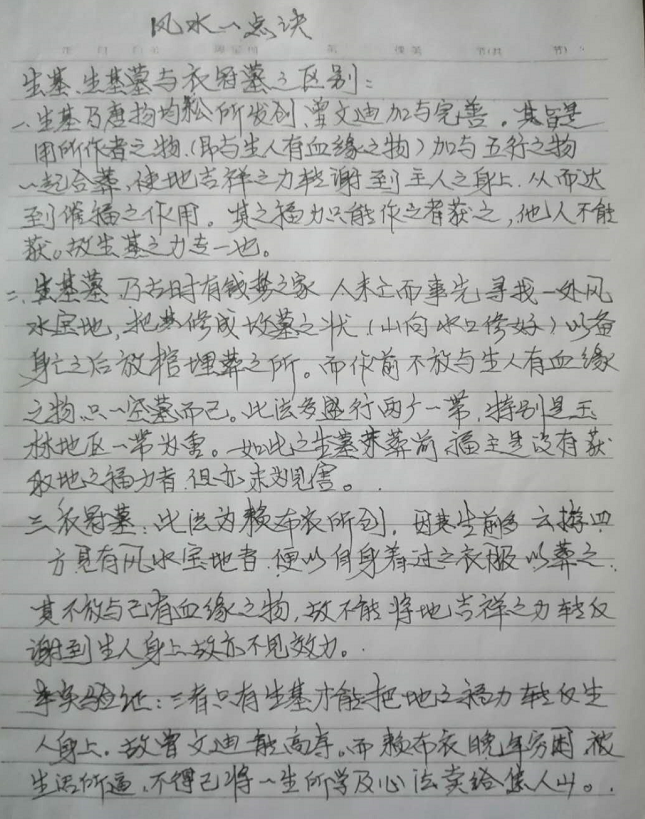 风水一点诀
生基、生基墓与衣冠墓之区别：
一、生基乃唐杨均松所发创、曾文迪加与完善。其旨是
用所作者之物、(即与生人有血缘之物)加与五行之物
一起合葬，使地吉祥之力转谢到主人之身上、从而达
到催福之作用。其之福力只能作之者获之，他人不能
获。故生基之力专一也。
二、生基墓 乃古时有钱势之家 人未亡而事先寻找一处风
水宝地，把其修成坟墓之状(山向水口修好)以备
身亡之后放棺埋葬之所。而作前不放与生人有血缘
之物、只一空墓而已。此法多盛行两广一带、特别是玉
林地区一带为害。如此之生墓未葬前，福主是没有获
取地之福力者，但亦未为见害。
三、衣冠墓：此法为赖布衣所创，因其生前多云游四
方見有风水宝地者 便以自身着过之衣服以葬之.
其不放与己有血缘之物，故不能将地吉祥之力转反
谢到生人身上，故亦不见效力。
事实验证：三者只有生基才能把地之福力转反生
人身上，故曾文迪能高寿。而赖布衣晚年穷困、被
生活所逼，不得已将一生所学及心法卖给焦人山。